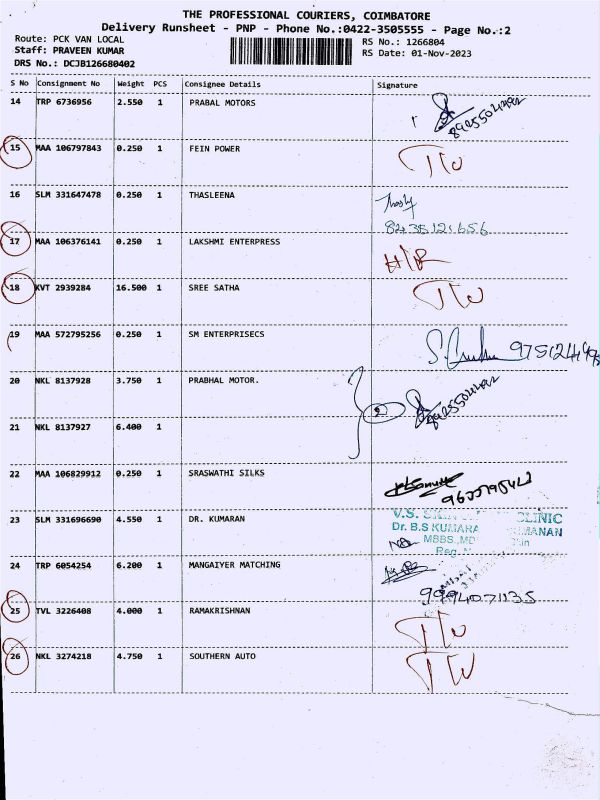 THE PROFESSIONAL COURIERS, COIMBATORE
Delivery Runsheet - PNP - Phone No.:0422-3505555 - Page No.:2
Route: PCK VAN LOCAL
RS No.: 1266804
Staff: PRAVEEN KUMAR
RS Date: 01-Nov-2023
DRS No.: DCJB126680402
S No Consignment No Weight PCS Consignee Details Signature
14 TRP 6736956 2.550 1 PRABAL MOTORS
15 MAA 106797843 0.250 1 FEIN POWER
16 SLM 331647478 0.250 1 THASLEENA
8435121656
17 MAA 106376141 0.250 1 LAKSHMI ENTERPRESS
18 KVT 2939284 16.500 1 SREE SATHA
19 MAA 572795256 0.250 1 SM ENTERPRISECS
20 NKL 8137928 3.750 1 PRABHAL MOTOR.
21 NKL 8137927 6.400 1
2
22 MAA 106829912 0.250 1 SRASWATHI SILKS
23 SLM 331696690 4.550 1 DR. KUMARAN
V.S. CLINIC
Dr. B.S KUMARA MANAN
MBBS.,MD
24 TRP 6054254 6.200 1 MANGAIYER MATCHING
9994071135
25 TVL 3226408 4.000 1 RAMAKRISHNAN
26 NKL 3274218 4.750 1 SOUTHERN AUTO